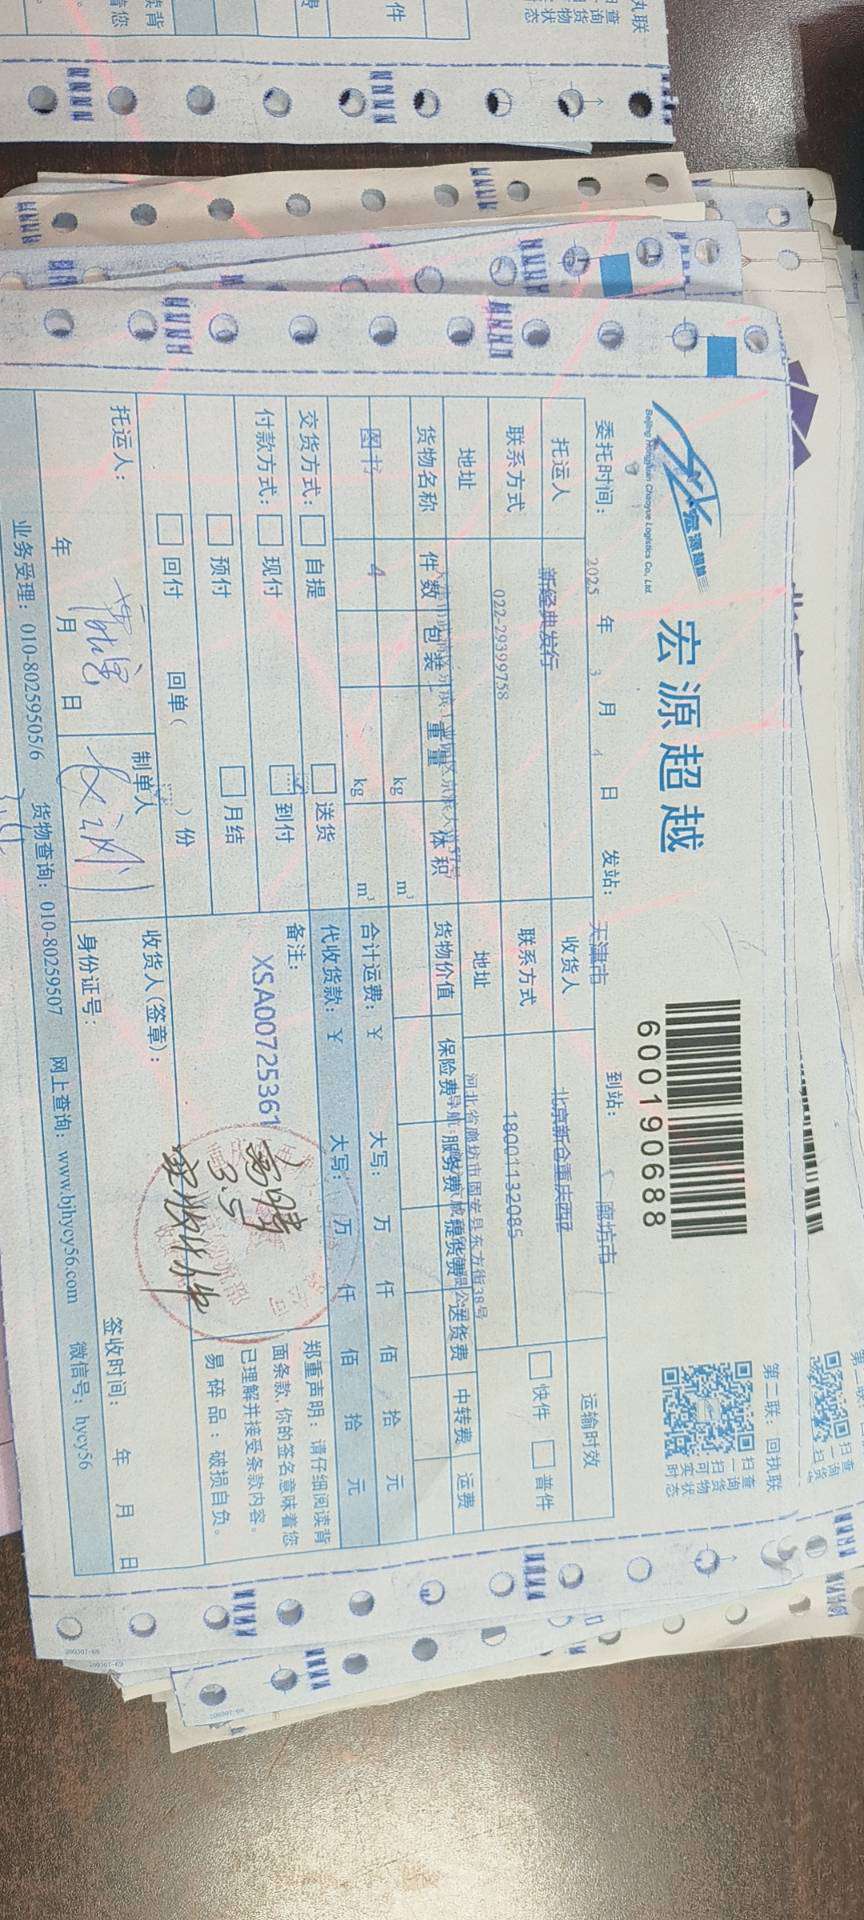 宏源超越
宏源超越
Beijing Hongyuan Chaoyue Logistics Co., Ltd.
600190688
第二联：回执联
扫一扫
查询货物状态
委托时间： 2025 年 3 月 4 日 发站： 天津市 到站： 廊坊市
托运人 新经典发行 收货人 北京新仓重庆西区 运输时效
联系方式 022-29399758 联系方式 18001132085 快件 普件
地址 地址 河北省廊坊市固安县东方街38号
货物名称 件数 包装 重量 体积 货物价值 保险费 服务费 提货费 送货费 中转费 运费
图书 4 kg m³
kg m³
合计运费：￥ 大写： 万 仟 佰 拾 元
代收货款：￥ 大写： 万 仟 佰 拾 元
交货方式： 自提 送货
付款方式： 现付 到付
预付 月结
回付 回单（ ）份
备注：
XSA00725361
3.5
郑重声明：请仔细阅读背
面条款，你的签名意味着您
已理解并接受条款内容。
易碎品：破损自负。
托运人： 年 月 日
制单人
收货人(签章)：
身份证号：
签收时间： 年 月 日
业务受理：010-80259505/6 货物查询：010-80259507 网上查询：www.bjhycy56.com 微信号：hycy56